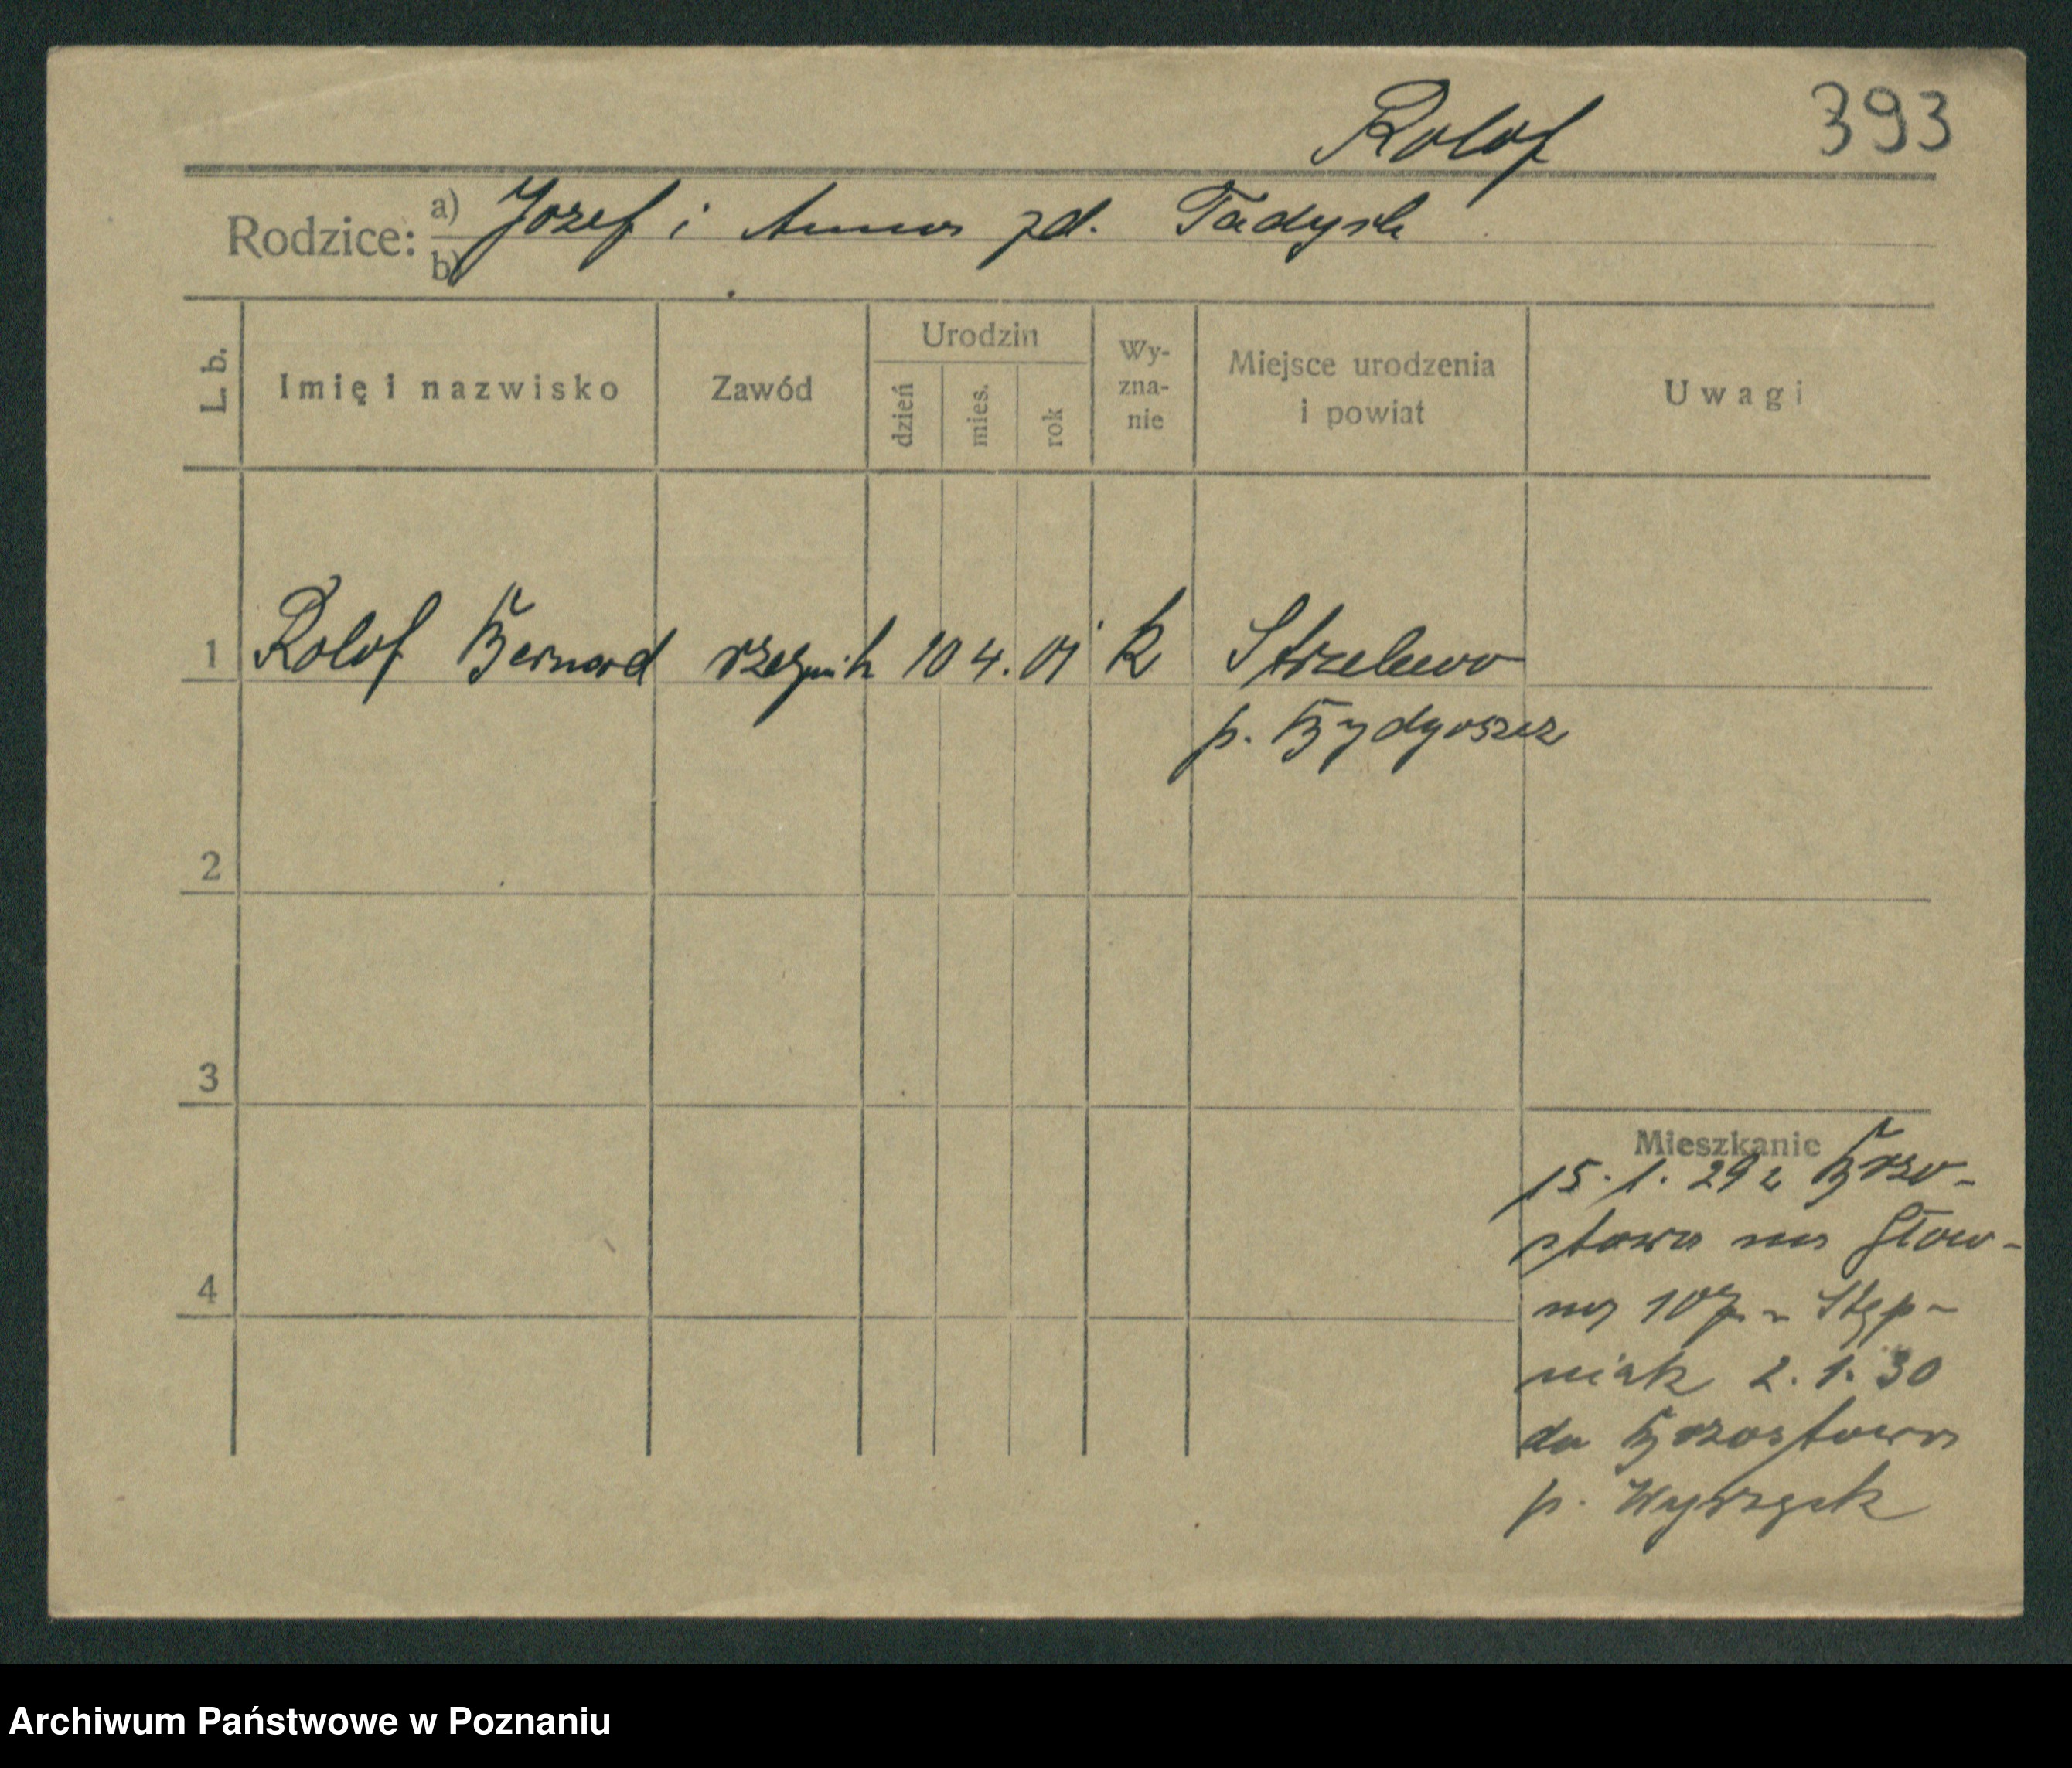 Rolof 393
Rodzice: a) Jozef i Anna zd. Tadych
b)
L. b. Imię i nazwisko Zawód Urodzin dzień mies. rok Wy-zna-nie Miejsce urodzenia i powiat Uwagi
1 Rolof Bernard rzeznik 10 4. 01 k Strzelewo
p. Bydgoszcz
2
3
Mieszkanie
15. 1. 29 z Brzo-
stowa na Głów-
4
na 107. Stęp-
niak 2. 1. 30
do Brzostowa
p. Wyrzysk
Archiwum Państwowe w Poznaniu